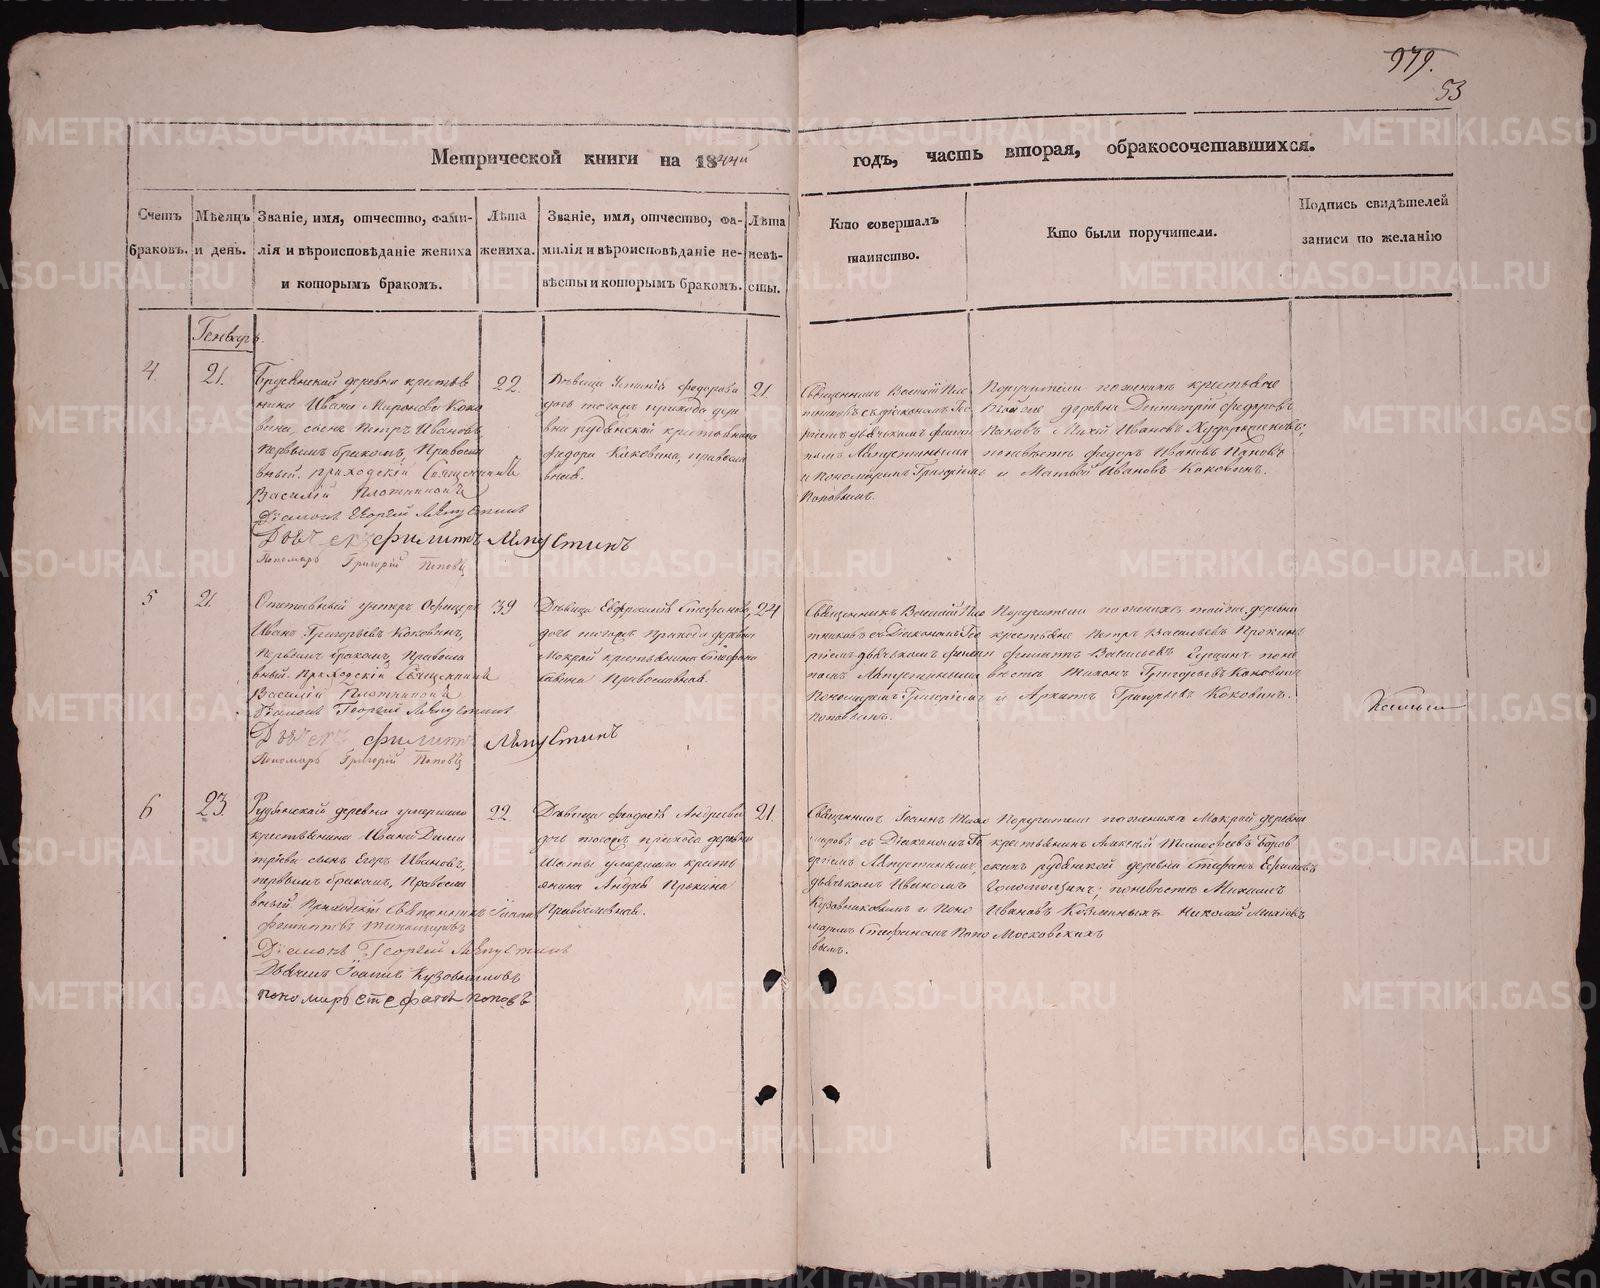 979.
53
Метрической книги на 1844й годъ, часть вторая, обракосочетавшихся.
Счетъ браковъ.
Мѣсяцъ и день.
Званіе, имя, отчество, фамилія и вѣроисповѣданіе жениха и которымъ бракомъ.
Лѣта жениха.
Званіе, имя, отчество, фамилія и вѣроисповѣданіе невѣсты и которымъ бракомъ.
Лѣта невѣсты.
Кто совершалъ таинство.
Кто были поручители.
Подпись свидѣтелей записи по желанію
Генварь.
4.
21.
деревни крестья
нина Ивана Миронова Коко
вина, сынъ Петръ Ивановъ
первымъ бракомъ, Правосла
вный. Приходскій Священникъ
Василій Плотниковъ
Діаконъ Георгій Ляпустинъ
Дьячекъ Филитъ Ляпустинъ
Пономарь Григорій Поповъ
22.
Дѣвица Устинія Федорова
дочь тогожъ прихода дере
вни рудянской крестьянина
Федора Коковина, правосла
вная.
21.
Священникъ Василій Пло
тниковъ съ діакономъ Гео
ргіемъ дьячкомъ Фили
томъ Ляпустиными
и пономаремъ Григоріемъ
Поповымъ.
Поручители по женихѣ крестьяне
деревни Димитрій Федоровъ
Пановъ Михей Ивановъ
по невѣстѣ Федоръ Ивановъ Пановъ
и Матвей Ивановъ Коковинъ.
5
21.
Отставный унтеръ Офицеръ
Иванъ Григорьевъ Коковинъ,
первымъ бракомъ, Правосла
вный. Приходскій Священникъ
Василій Плотниковъ
Діаконъ Георгій Ляпустинъ
Дьячекъ Филитъ Ляпустинъ
Пономарь Григорій Поповъ
39
Дѣвица Евфросинія Стефанова,
дочь тогожъ прихода деревни
Мокрой крестьянина Стефана
Православная.
24
Священникъ Василій Пло
тниковъ съ Діакономъ Гео
ргіемъ дьячкомъ Фили
томъ Ляпустиными
Пономаремъ Григоріемъ
Поповымъ.
Поручители по женихѣ тойже деревни
крестьяне Петръ Васильевъ
Филатъ Васильевъ по не
вѣстѣ Тихонъ Григорьевъ Коковинъ
и Григорьевъ Коковинъ.
6
23.
Рудянской деревни умершаго
крестьянина Ивана Дими
тріева сынъ Егоръ Ивановъ,
первымъ бракомъ, Правосла
вный. Приходскій Священникъ Іоаннъ
Діаконъ Георгій Ляпустинъ
Дьячекъ Іоаннъ Кузовниковъ
пономарь стефанъ поповъ
22.
Дѣвица Феодосія Андреева
дочь тогожъ прихода деревни
умершаго кресть
янина Андрея
Православная.
21.
Священникъ Іоаннъ
съ Діакономъ Ге
оргіемъ Ляпустинымъ,
дьячкомъ Иваномъ
Кузовниковымъ и Поно
маремъ Стефаномъ Попо
вымъ.
Поручители по женихѣ Мокрой деревни
крестьянинъ Алексій Тимофеевъ Боров
скихъ рудянской деревни Стефанъ Ефимовъ
по невѣстѣ Михаилъ
Ивановъ Козминыхъ Николай
Московскихъ